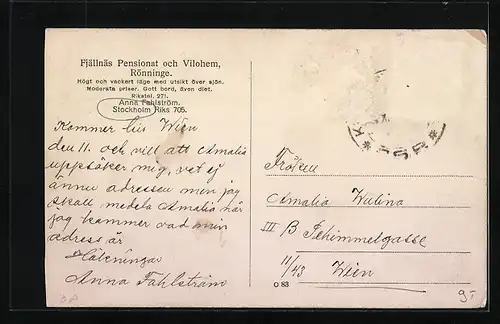 Fjällnäs Pensionat och Vilohem,
Rönninge.
Högt och vackert läge med utsikt över sjön.
Moderata priser. Gott bord, även diet.
Rikstel. 271.
Anna Fahlström.
Stockholm Riks 705.
Kommer till Wien
den 11. och vill att Amalia
uppsöker mig, vet ej
ännu adressen men jag
skall meddela Amalia när
jag kommer vad min
adress är
Hälsningar
Anna Fahlström
Fröken
Amalia
III B
11/43
Wien
O 83